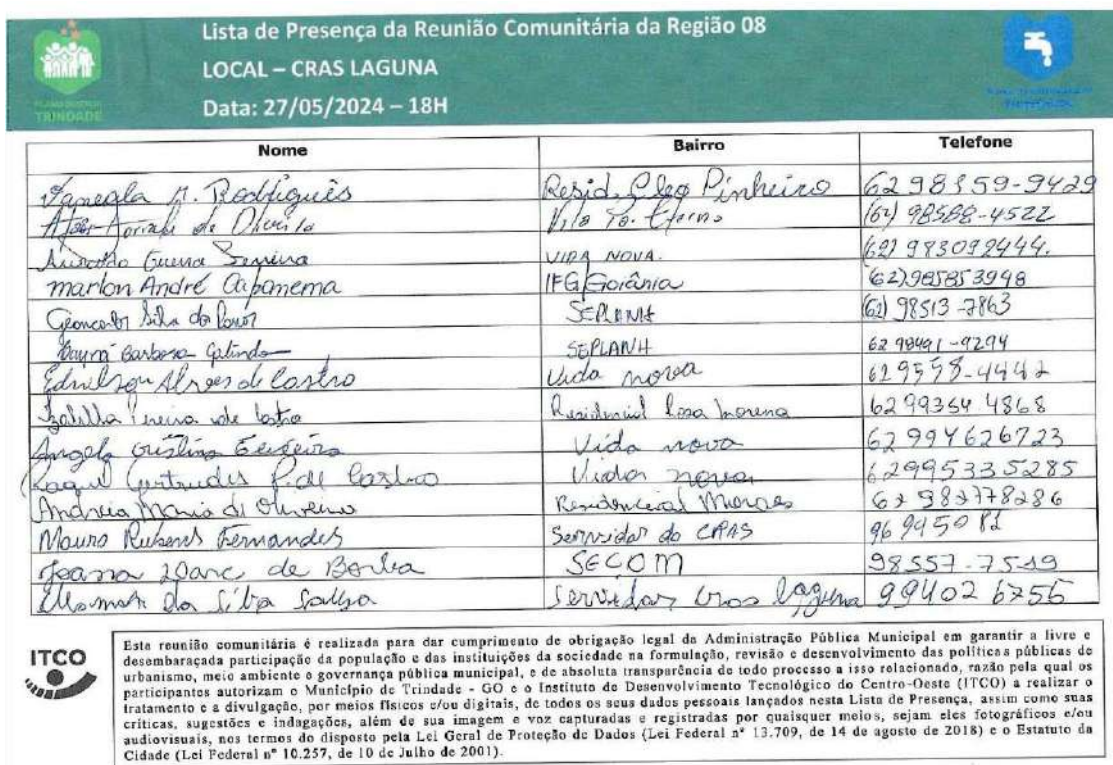 Lista de Presença da Reunião Comunitária da Região 08
LOCAL – CRAS LAGUNA
Data: 27/05/2024 – 18H
TRINDADE
Nome Bairro Telefone
Rodrigues Resid. Cleo Pinheiro 62 98159-9429
de Vila Pai Eterno (62) 98588-4522
Guerra VIDA NOVA. (62) 983092444.
marlon André Capanema IFG/Goiânia (62)985853948
Silva SEPLANH (62) 98513-7863
Barbosa Galindo SEPLANH 62 98491-9294
Ednilson Alves de Castro Vida nova 629558-4442
Pereira de Castro Residencial Rosa Morena 62 99354 4868
Angela Cristina Teixeira Vida nova 62 994626723
Raquel Gertrudes P. de Castro Vida nova 62995335285
Andreia Maria de Oliveira Residencial Moraes 62 982778286
Mauro Rubens Fernandes Servidor do CRAS 96 945 0
Joana Darc de Borba SECOM 98557-7519
da Silva Servidor Cras laguna 99402 6756
ITCO
Esta reunião comunitária é realizada para dar cumprimento de obrigação legal da Administração Pública Municipal em garantir a livre e
desembaraçada participação da população e das instituições da sociedade na formulação, revisão e desenvolvimento das políticas públicas de
urbanismo, meio ambiente e governança pública municipal, e de absoluta transparência de todo processo a isso relacionado, razão pela qual os
participantes autorizam o Município de Trindade - GO e o Instituto de Desenvolvimento Tecnológico do Centro-Oeste (ITCO) a realizar o
tratamento e a divulgação, por meios físicos e/ou digitais, de todos os seus dados pessoais lançados nesta Lista de Presença, assim como suas
críticas, sugestões e indagações, além de sua imagem e voz capturadas e registradas por quaisquer meios, sejam eles fotográficos e/ou
audiovisuais, nos termos do disposto pela Lei Geral de Proteção de Dados (Lei Federal nº 13.709, de 14 de agosto de 2018) e o Estatuto da
Cidade (Lei Federal nº 10.257, de 10 de Julho de 2001).